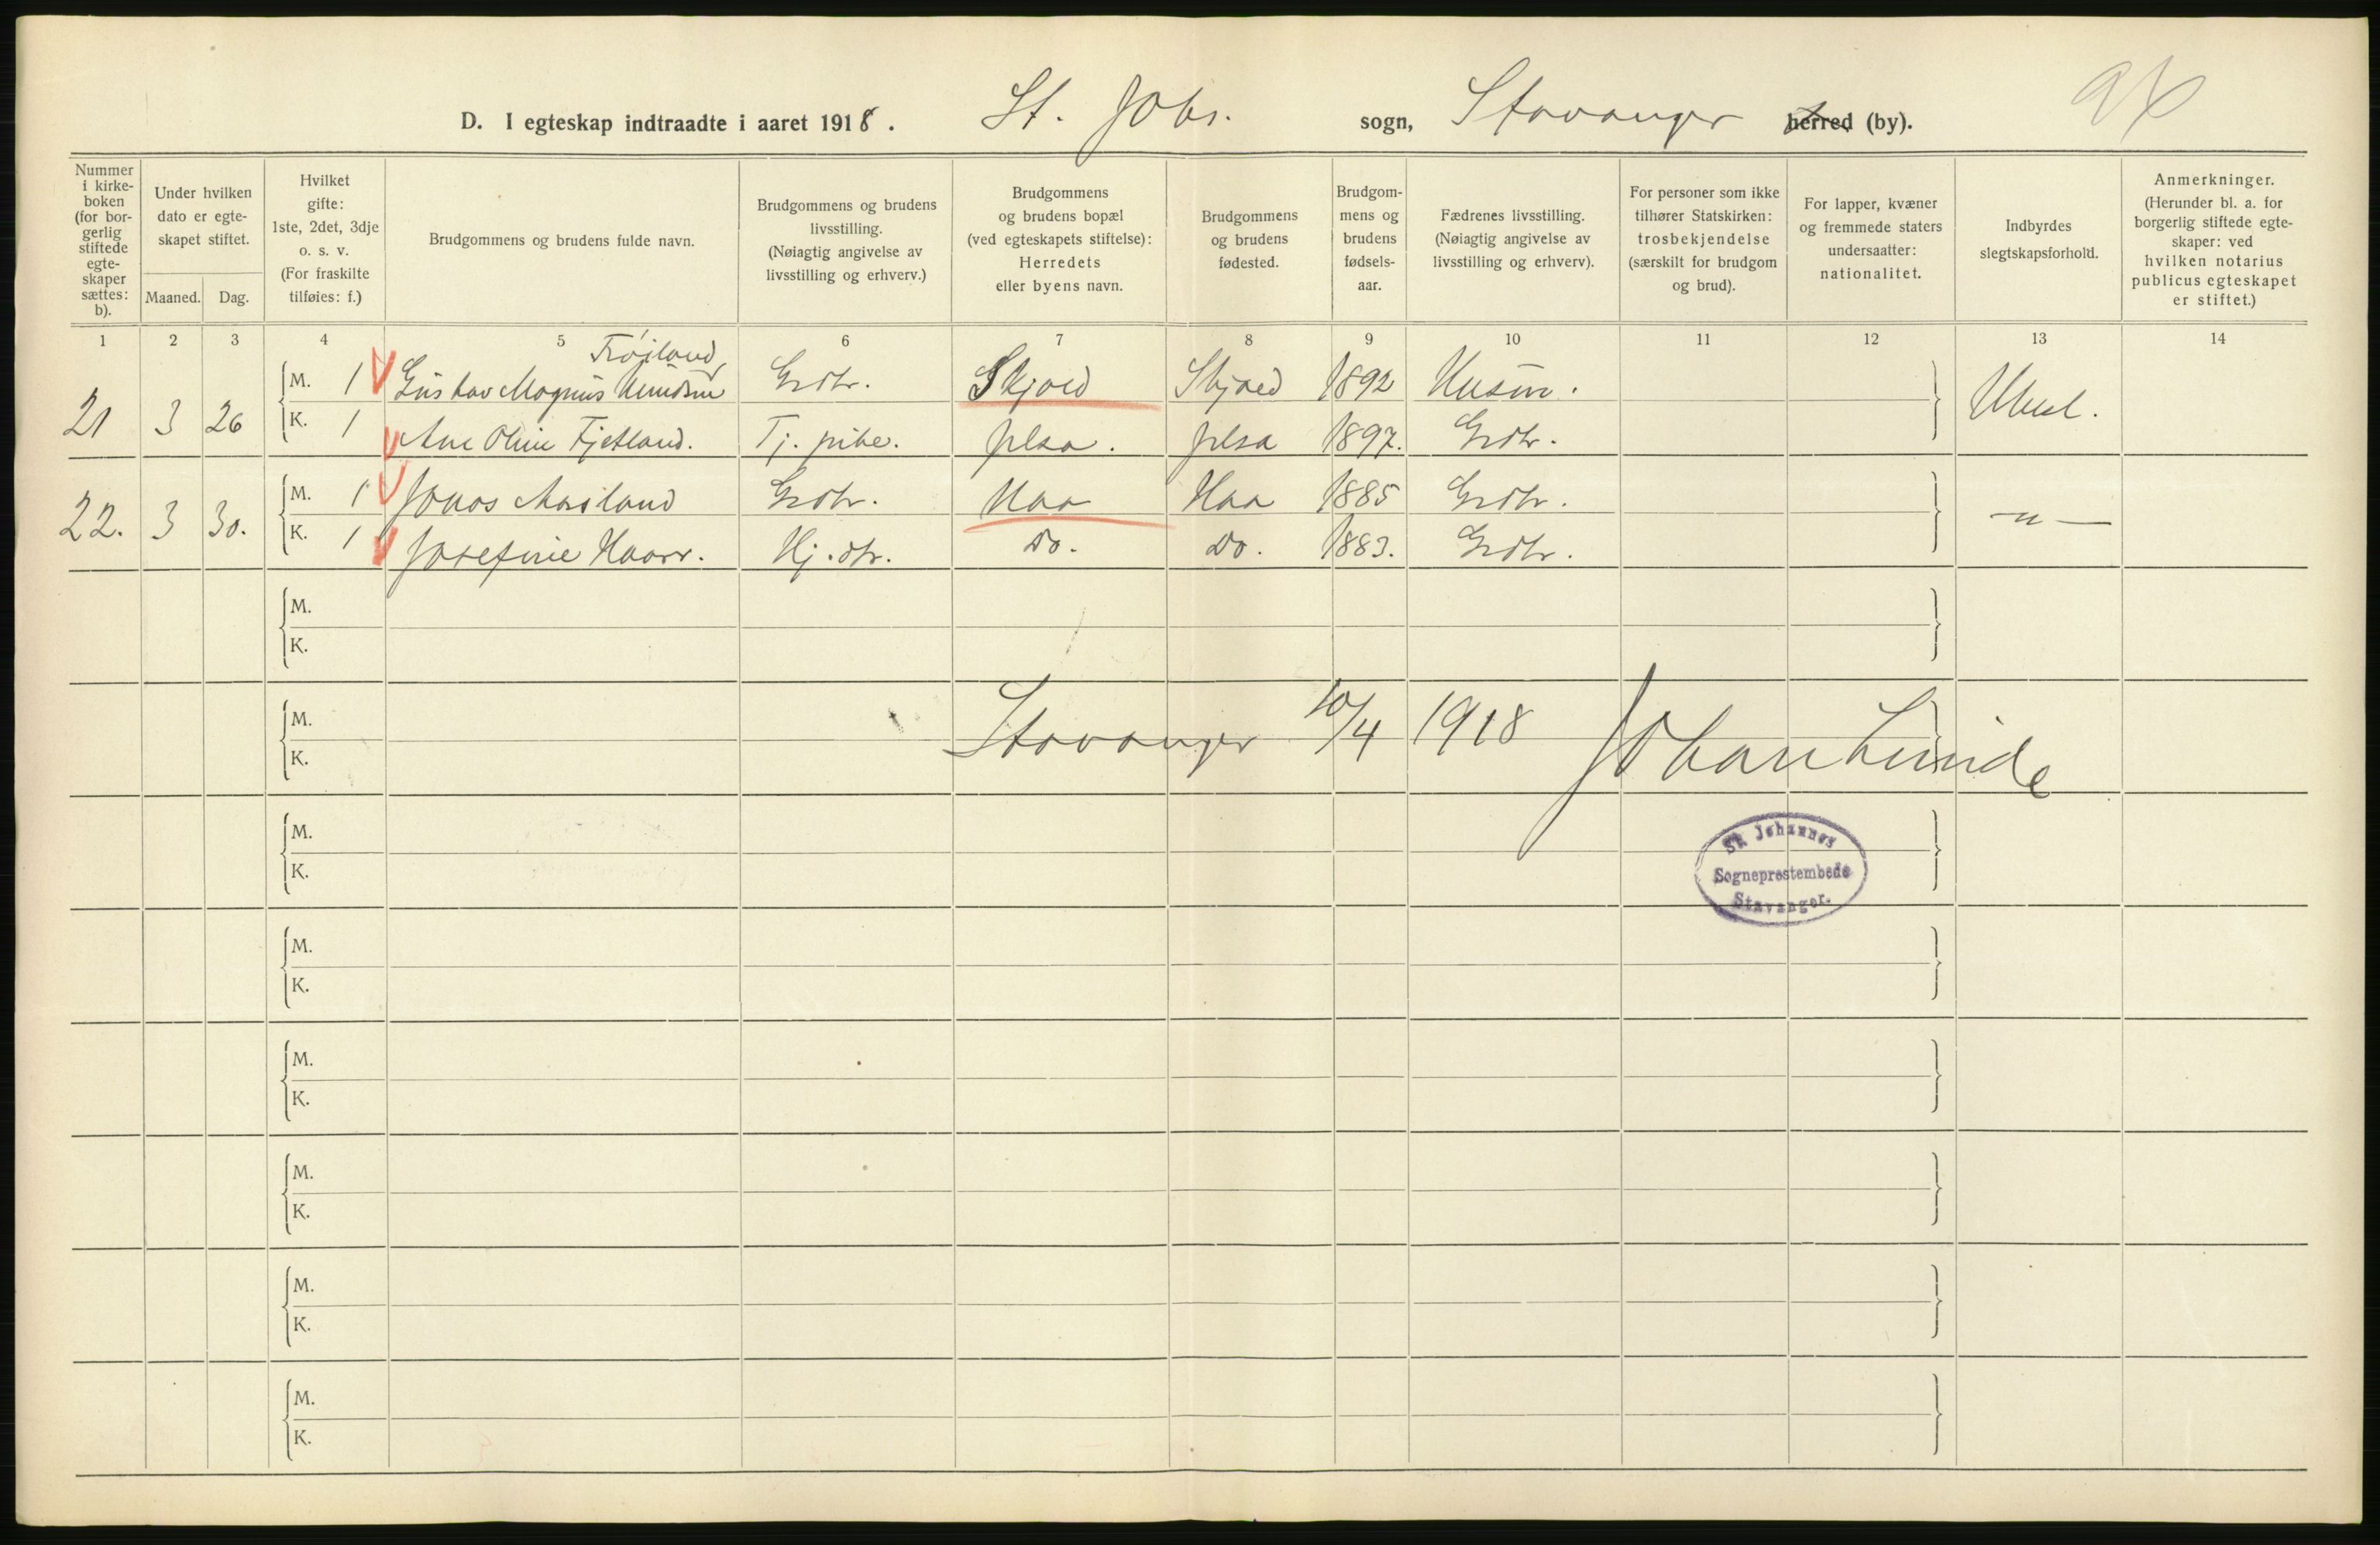 D. I egteskap indtraadte i aaret 1918. St. Johs. sogn, Stavanger herred (by).
Nummer i kirke- boken (for bor- gerlig stiftede egte- skaper sættes: b).
Under hvilken dato er egte- skapet stiftet.
Maaned. Dag.
Hvilket gifte: 1ste, 2det, 3dje o. s. v. (For fraskilte tilføies: f.)
Brudgommens og brudens fulde navn.
Brudgommens og brudens livsstilling. (Nøiagtig angivelse av livsstilling og erhverv.)
Brudgommens og brudens bopæl (ved egteskapets stiftelse): Herredets eller byens navn.
Brudgommens og brudens fødested.
Brudgom- mens og brudens fødsels- aar.
Fædrenes livsstilling. (Nøiagtig angivelse av livsstilling og erhverv).
For personer som ikke tilhører Statskirken: trosbekjendelse (særskilt for brudgom og brud).
For lapper, kvæner og fremmede staters undersaatter: nationalitet.
Indbyrdes slegtskapsforhold.
Anmerkninger. (Herunder bl. a. for borgerlig stiftede egte- skaper: ved hvilken notarius publicus egteskapet er stiftet.)
1 2 3 4 5 6 7 8 9 10 11 12 13 14
21 3 26 M. 1 Gustav Magnus Knudsen Frøiland Grdbr. Skjold Skjold 1892 Husm. Ubesl.
K. 1 Ane Oline Fjetland. Tj. pike. Jelsa. Jelsa 1897. Grdbr.
22. 3 30. M. 1 Jonas Aasland Grdbr. Haa Haa 1885 Grdbr. — " —
K. 1 Josefine Haarr. Hj. dtr. Do. Do. 1883. Grdbr.
M.
K.
M.
K.
Stavanger 10/4 1918 Johan Lunde
M.
K.
St. Johannes
Sogneprestembede
Stavanger.
M.
K.
M.
K.
M.
K.
M.
K.
M.
K.